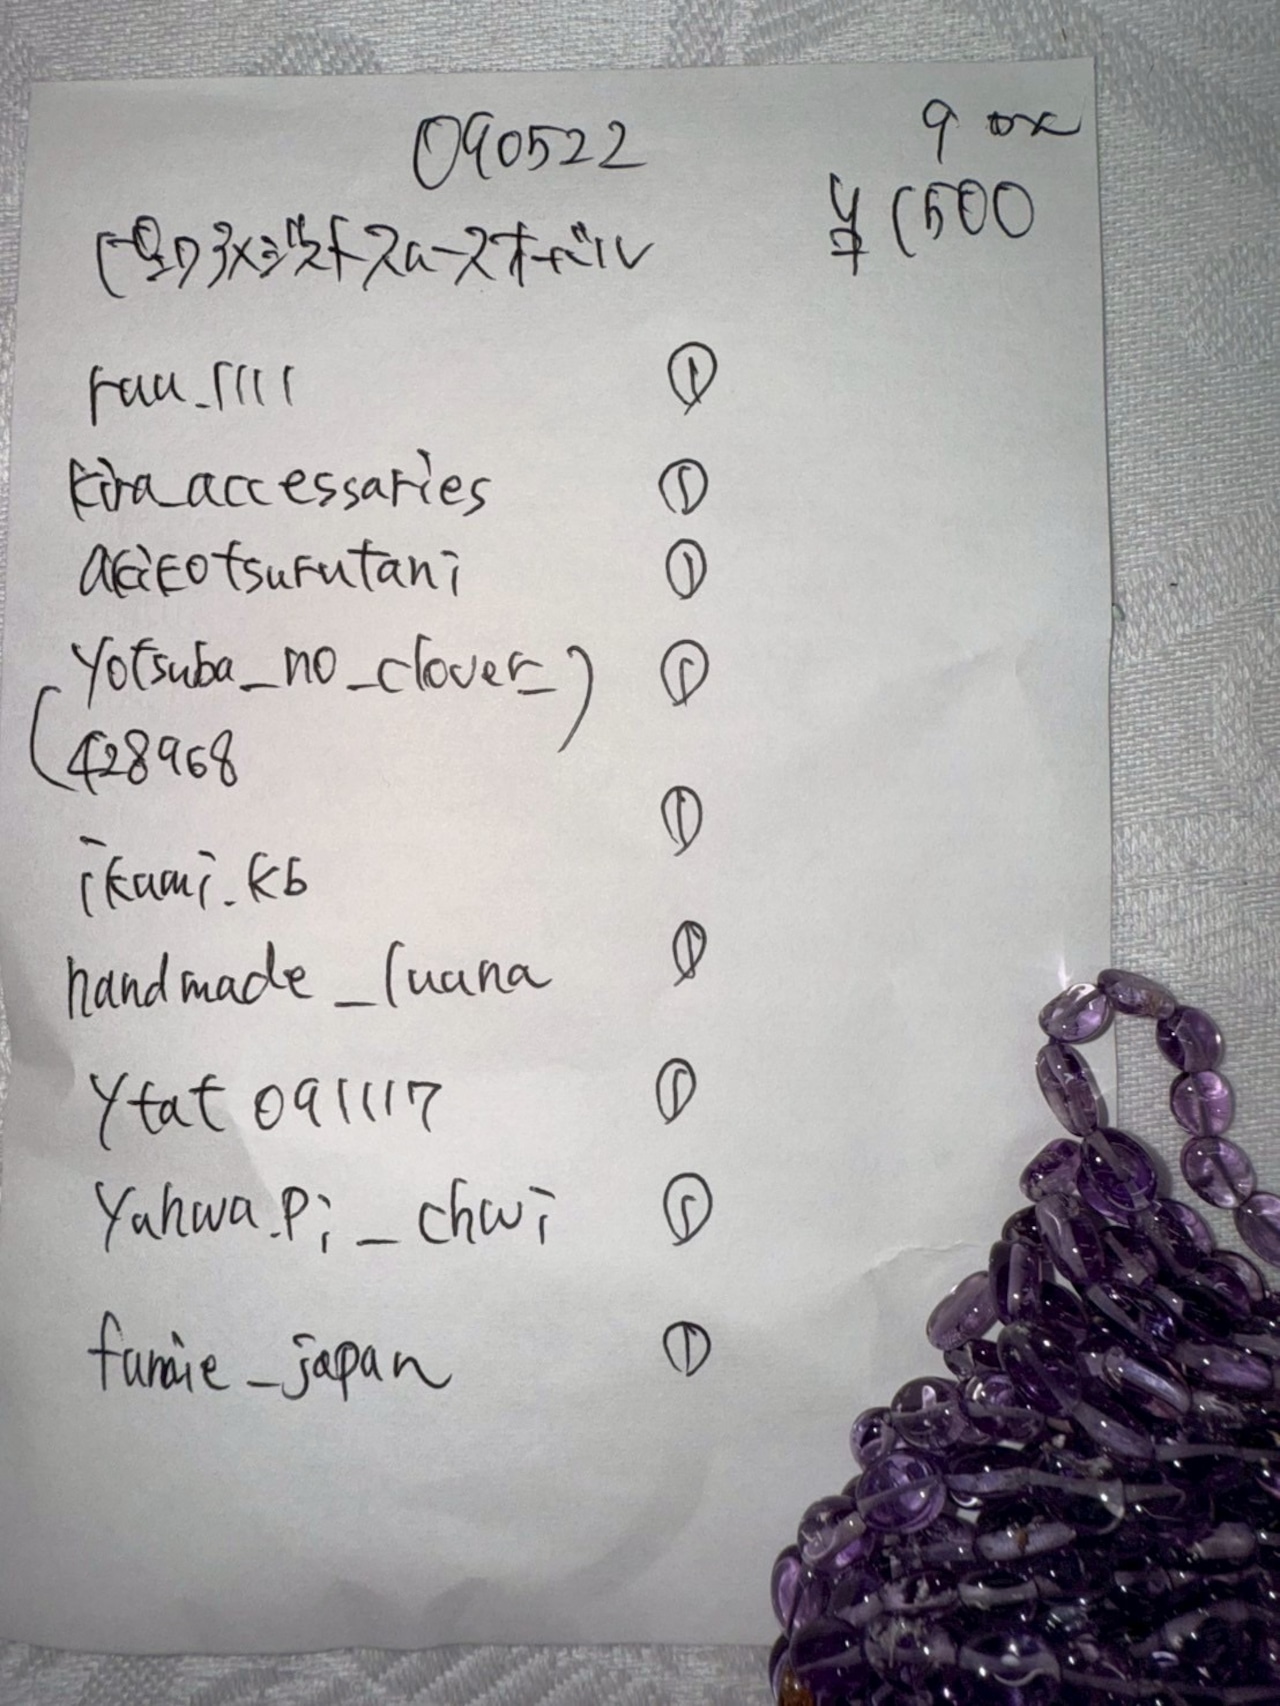 090522
9 ox
¥1500
アメジストスムースオーバル
ruu_1111
kira_accessaries
akikotsurutani
yotsuba_no_clover_
428968
ikumi.kb
handmade_luana
ytat091117
yahwa.pi_chwi
fumie_japan
① 
① 
① 
① 
① 
① 
① 
① 
①